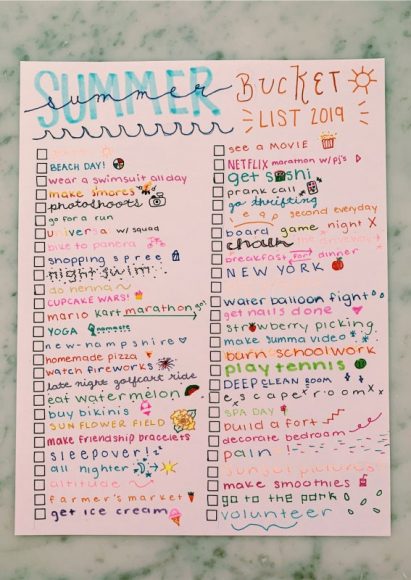 SUMMER
summer
BUCKET
LIST 2019
BEACH DAY!
wear a swimsuit all day
make s'mores
photoshoots
go for a run
universal w/ squad
bike to panera
shopping spree
night swim
do henna
CUPCAKE WARS!
mario kart marathon go!
YOGA
new-hampshire
homemade pizza
watch fireworks
late night golfcart ride
eat watermelon
buy bikinis
SUN FLOWER FIELD
make friendship bracelets
sleepover!
all nighter
altitude
farmer's market
get ice cream
see a MOVIE
NETFLIX marathon w/ pj's
get sushi
prank call
go thrifting
1 second everyday
board game night
chalk the driveway
breakfast for dinner
NEW YORK
water balloon fight
get nails done
strawberry picking
make summa video
burn schoolwork
play tennis
DEEP CLEAN room
escape room
SPA DAY
build a fort
decorate bedroom
paint
sunset pictures
make smoothies
go to the park
volunteer